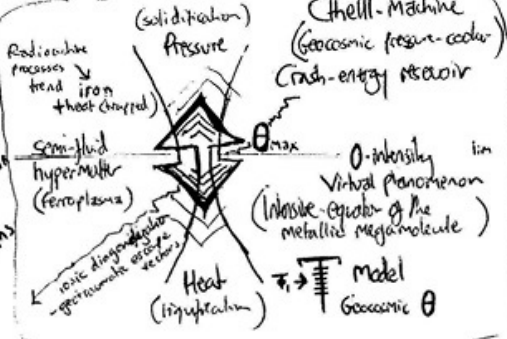 (solidification)
Pressure
Cthelll-Machine
(Geocosmic pressure-cooker)
Crash-energy reservoir
Radioactive
processes
trend
iron
+heat (trapped)
θmax
semi-fluid
hypermatter
(ferroplasma)
0-intensity
Virtual phenomenon
(Intensive-equator of the
metallic megamolecule)
ionic diagonalization
-geotraumatic escape
vectors
Heat
(liquification)
Model
Geocosmic θ